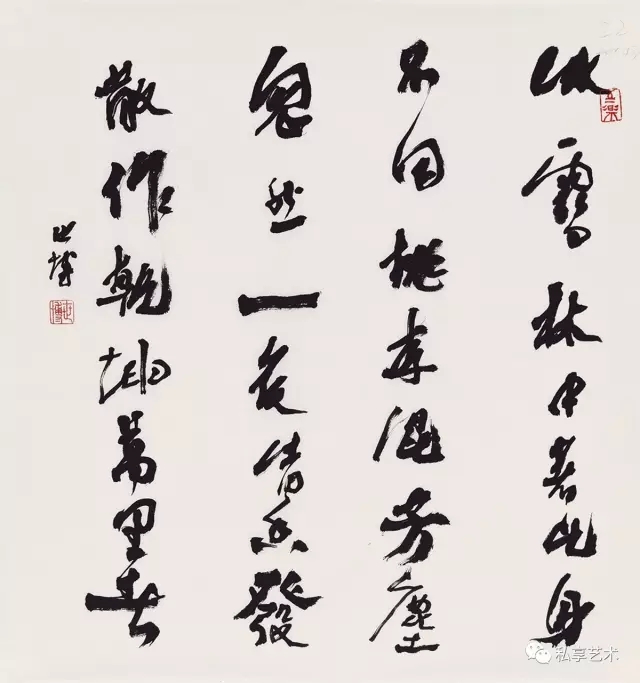 冰雪林中著此身
不同桃李混芳塵
忽然一夜清香發
散作乾坤萬里春
世博
世博
私享艺术